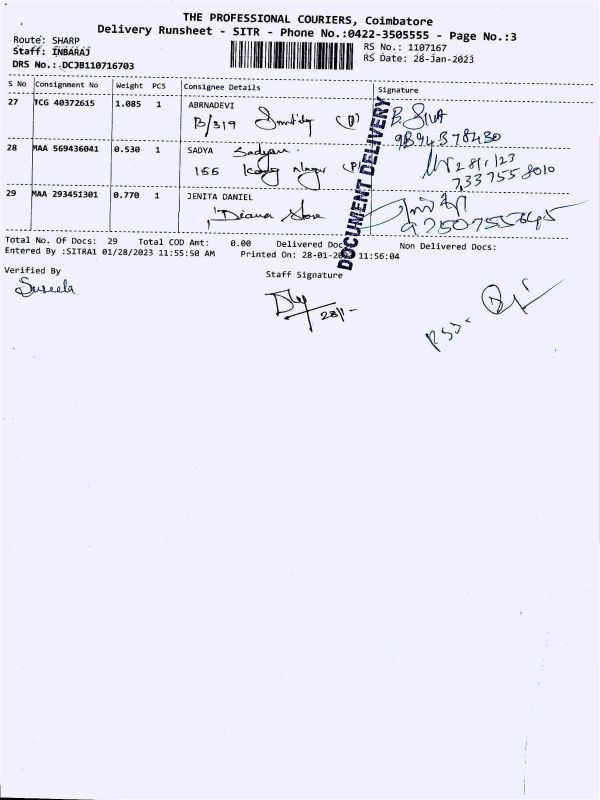 THE PROFESSIONAL COURIERS, Coimbatore
Delivery Runsheet - SITR - Phone No.:0422-3505555 - Page No.:3
Route: SHARP
Staff: INBARAJ
DRS No.: DCJB110716703
RS No.: 1107167
RS Date: 28-Jan-2023
S No Consignment No Weight PCS Consignee Details Signature
27 TCG 40372615 1.085 1 ABRNADEVI
B/319
B. SIVA
9894378430
28 MAA 569436041 0.530 1 SADYA
155 Nagar
28/1/23
7337558010
29 MAA 293451301 0.770 1 JENITA DANIEL
Diana Store
DOCUMENT DELIVERY
Total No. Of Docs: 29 Total COD Amt: 0.00 Delivered Doc Non Delivered Docs:
Entered By :SITRA1 01/28/2023 11:55:50 AM Printed On: 28-01-2023 11:56:04
Verified By
Staff Signature
Suseela
28/1-